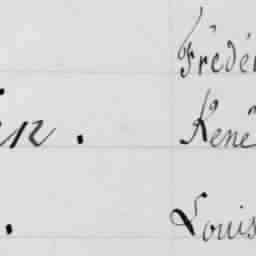 Fréder
en. René
. Louis